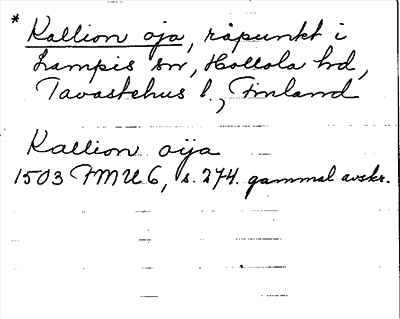 * Kallion oja, råpunkt i
Lampis sn, Hollola hd,
Tavastehus l., Finland
Kallion oija
1503 FMU 6, s. 274. gammal avskr.